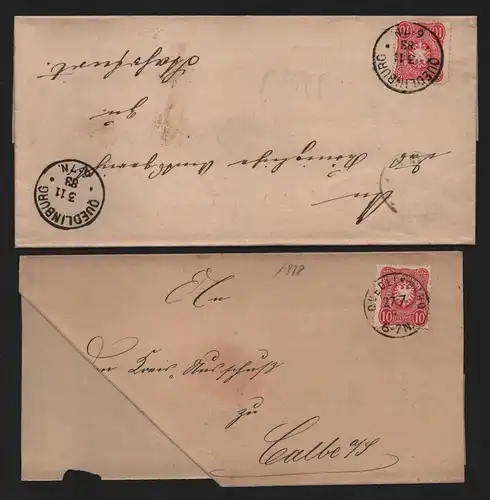 QUEDLINBURG
3 11
83
6-7N.
10 10
An
das Königliche Amtsgericht
zu
QUEDLINBURG
3 11
83
6-7N.
1878
QUEDLINBURG
6-7N.
10 10
An
den Kreis-Ausschuß
zu
Calbe a/S